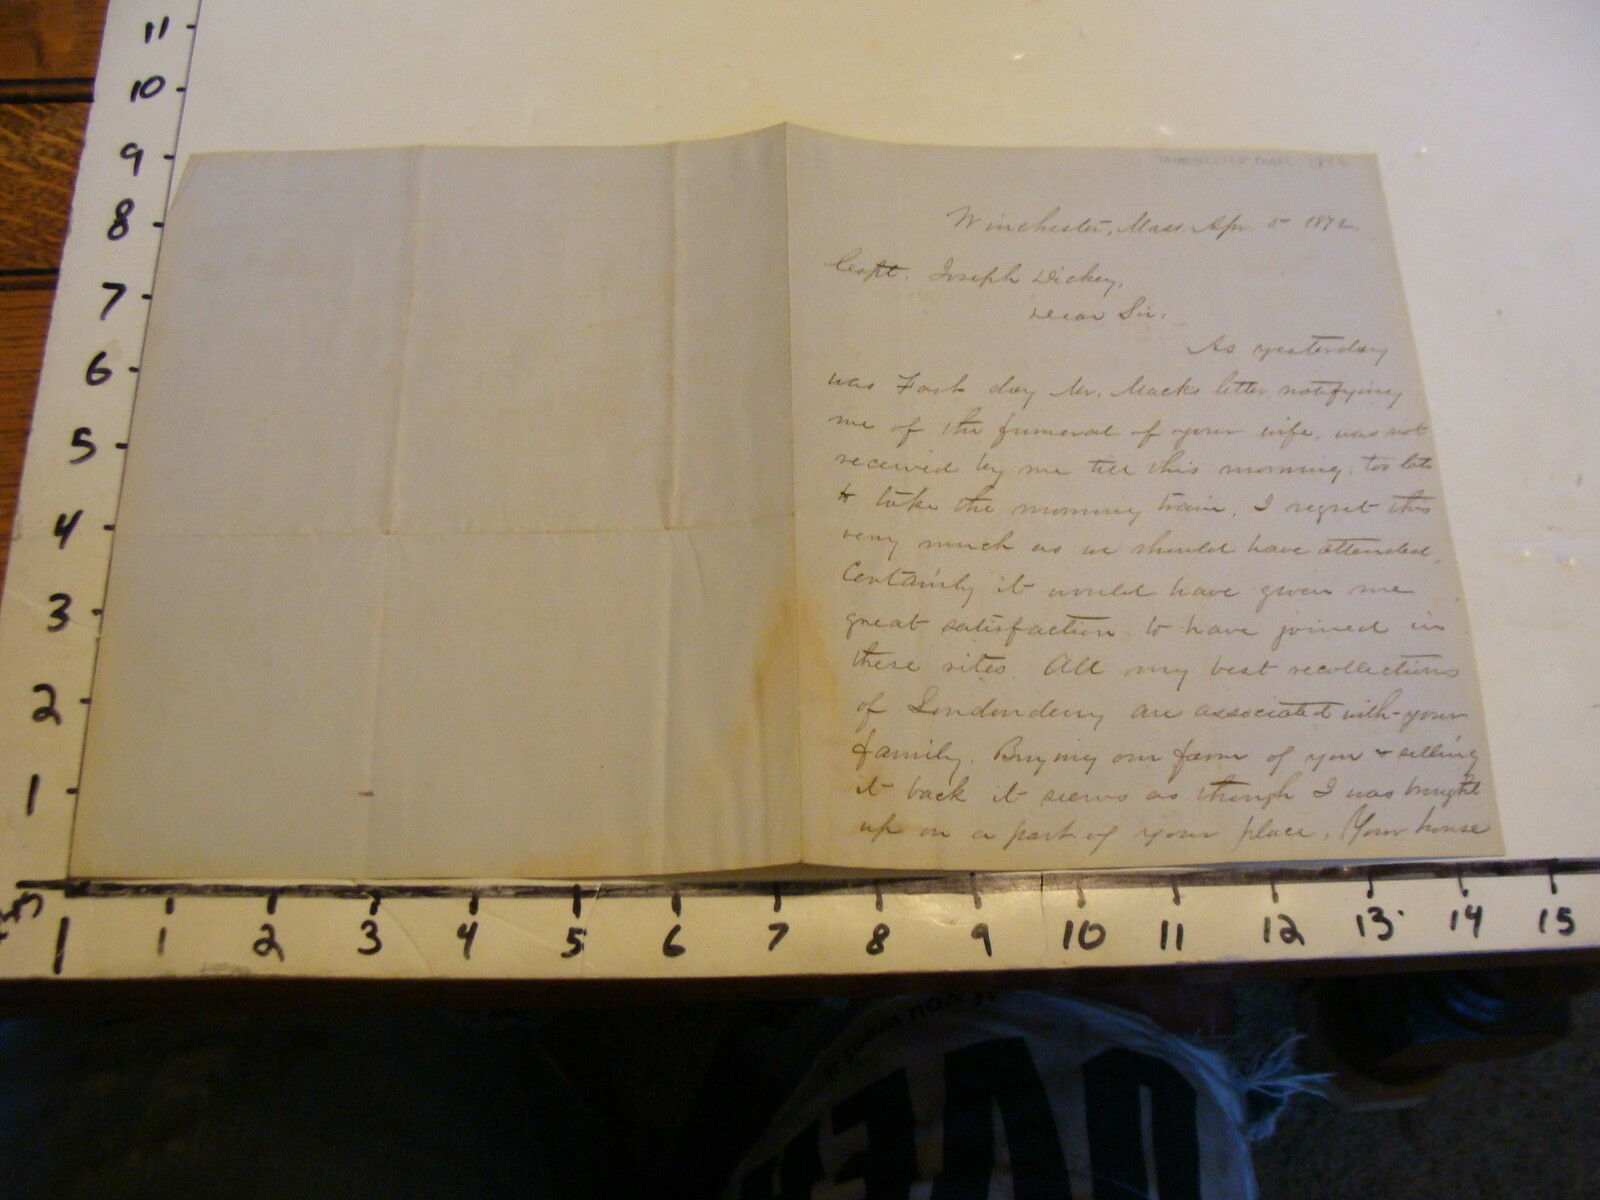 11
10
9
8
7
6
5
4
3
2
1
Winchester, Mass. Apr. 5 1872.
Capt. Joseph Dickey,
Dear Sir.
As yesterday
was Fast day Mr. Macks letter notifying
me of the funeral of your wife, was not
received by me till this morning, too late
to take the morning train. I regret this
very much as we should have attended.
Certainly it would have given me
great satisfaction to have joined in
these rites. All my best recollections
of Londonderry are associated with your
family. Buying our farm of you & selling
it back it seems as though I was brought
up on a part of your place. Your house
1 2 3 4 5 6 7 8 9 10 11 12 13 14 15